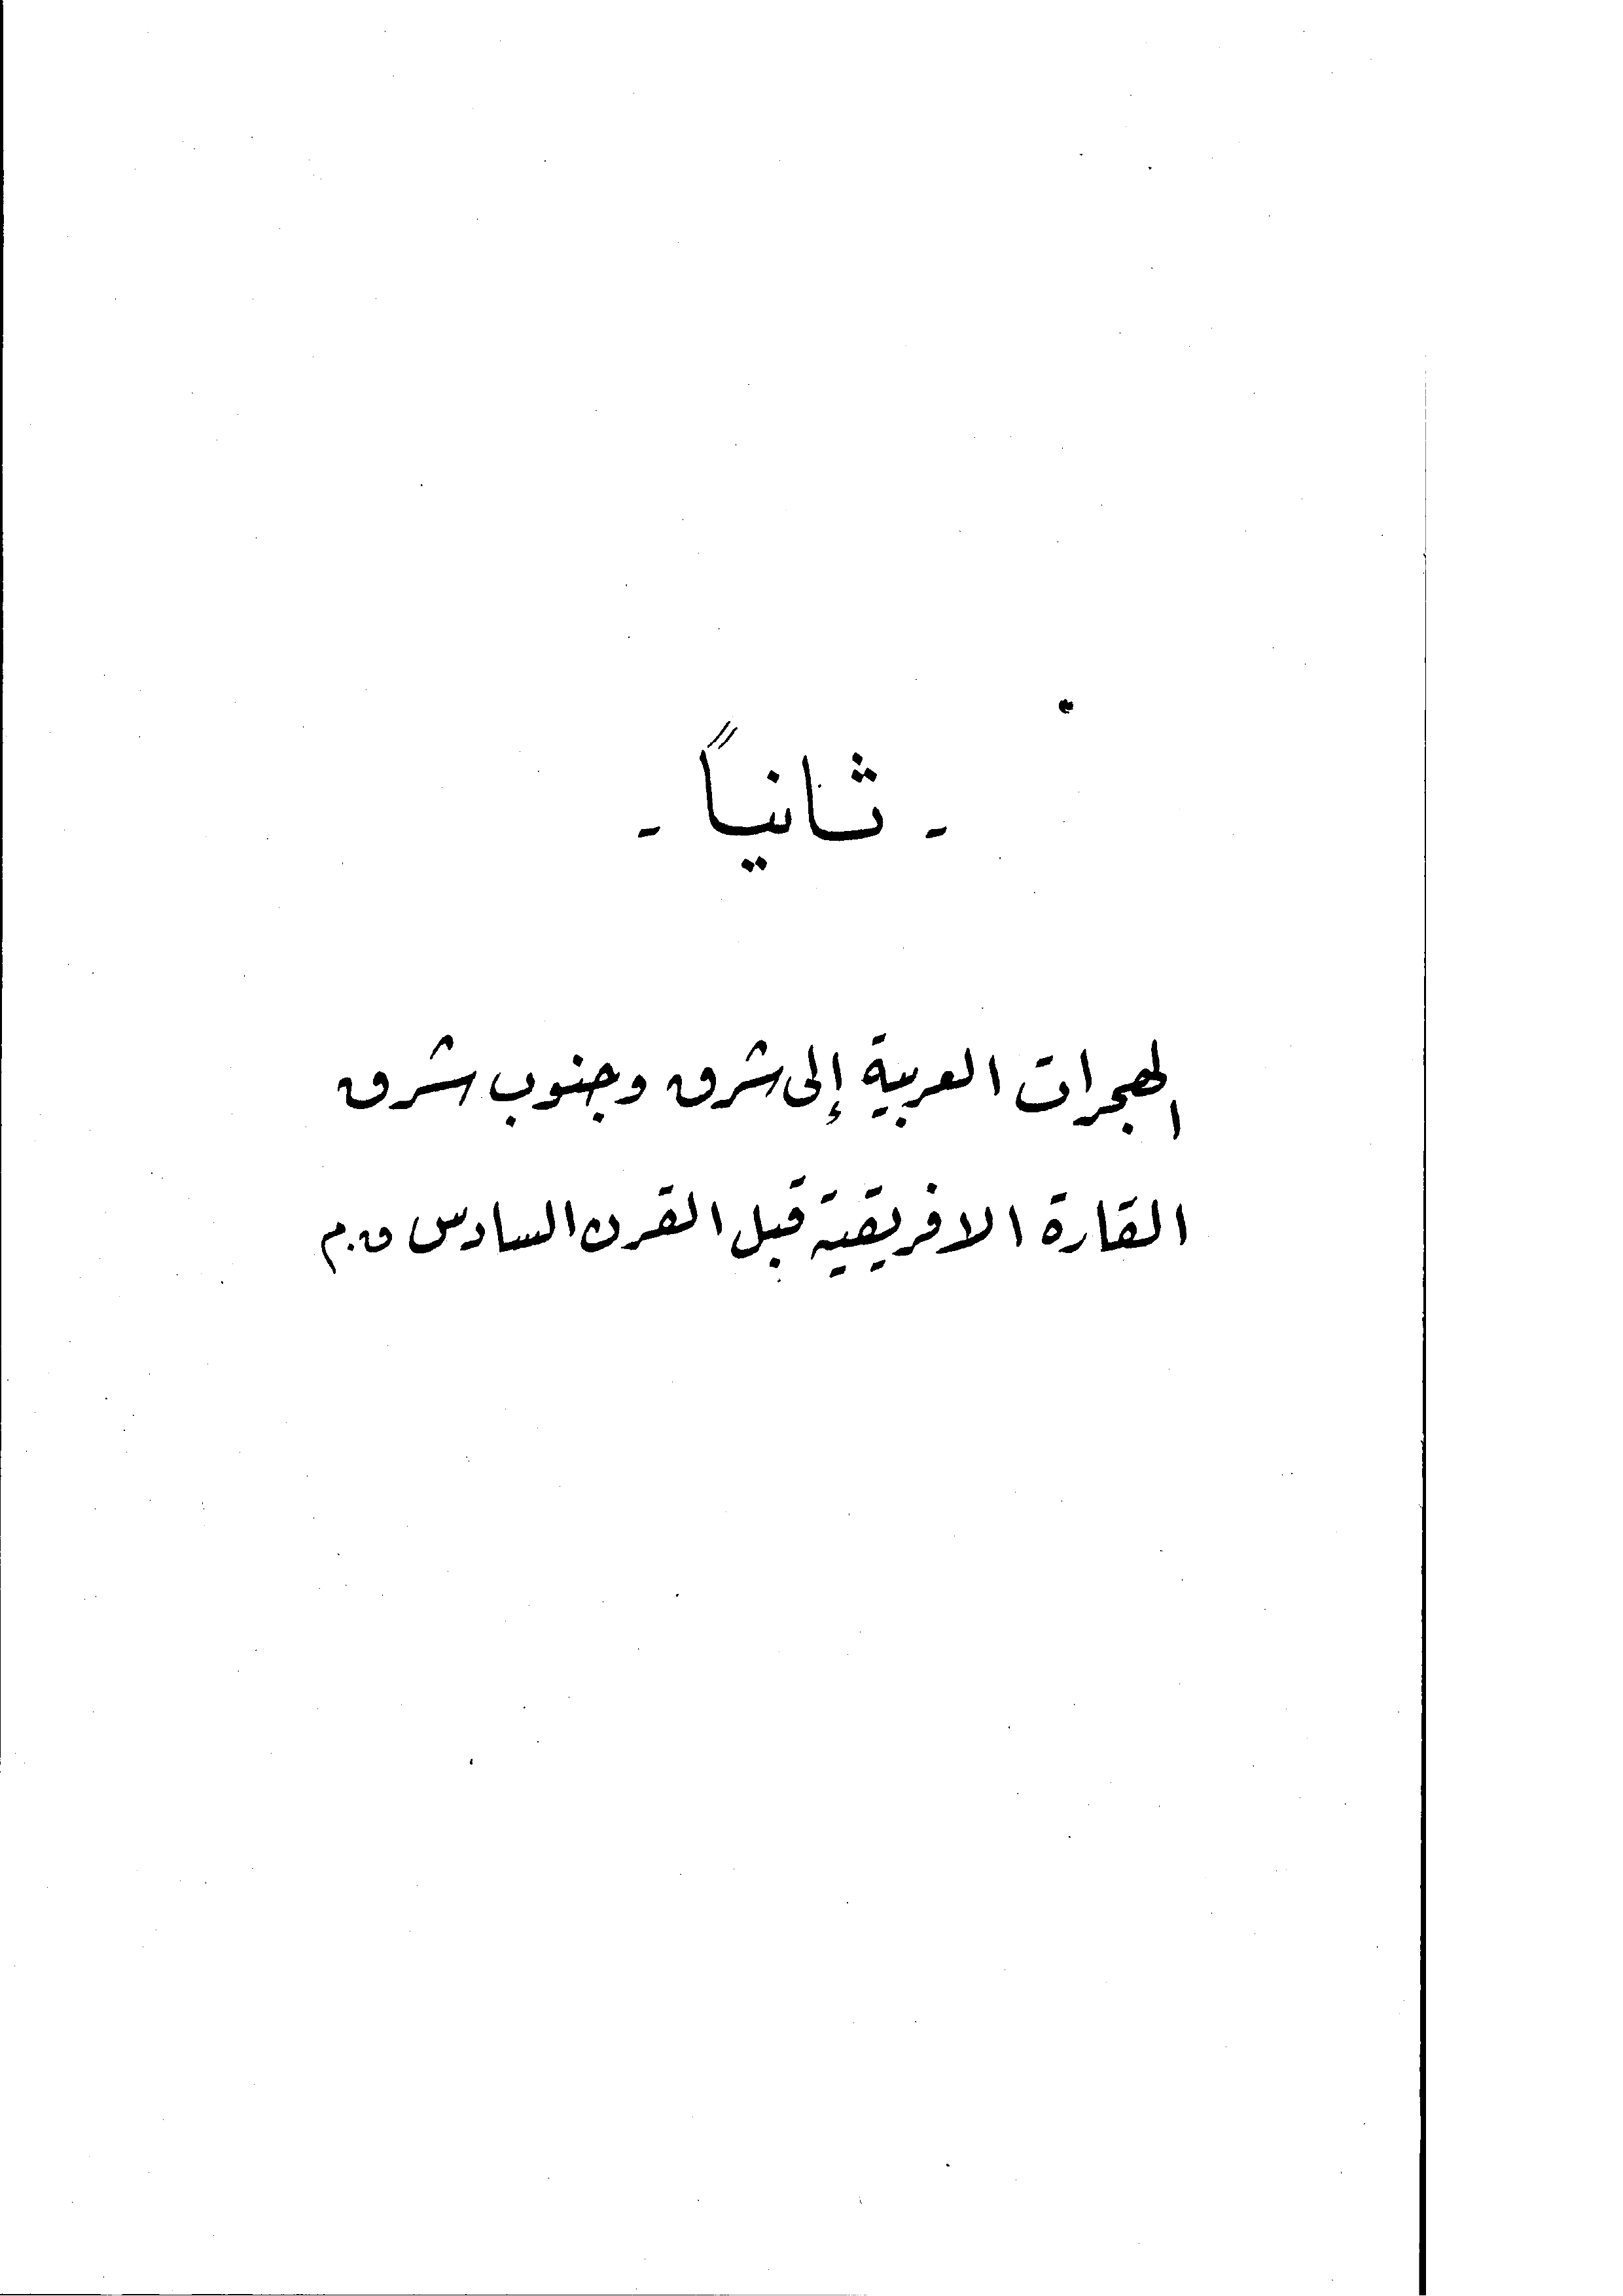 - ثانياً -
الهجرات العربية إلى شرق وجنوب شرق
القارة الافريقية قبل القرن السادس ق.م